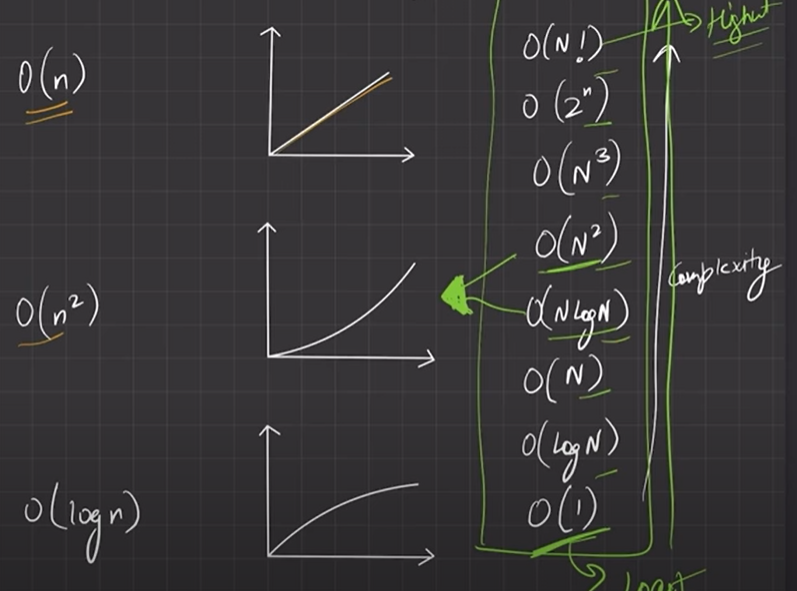 O(n)
O(n²)
O(log n)
O(N!)
Highest
O(2ⁿ)
O(N³)
O(N²)
O(N log N)
O(N)
O(log N)
O(1)
Complexity